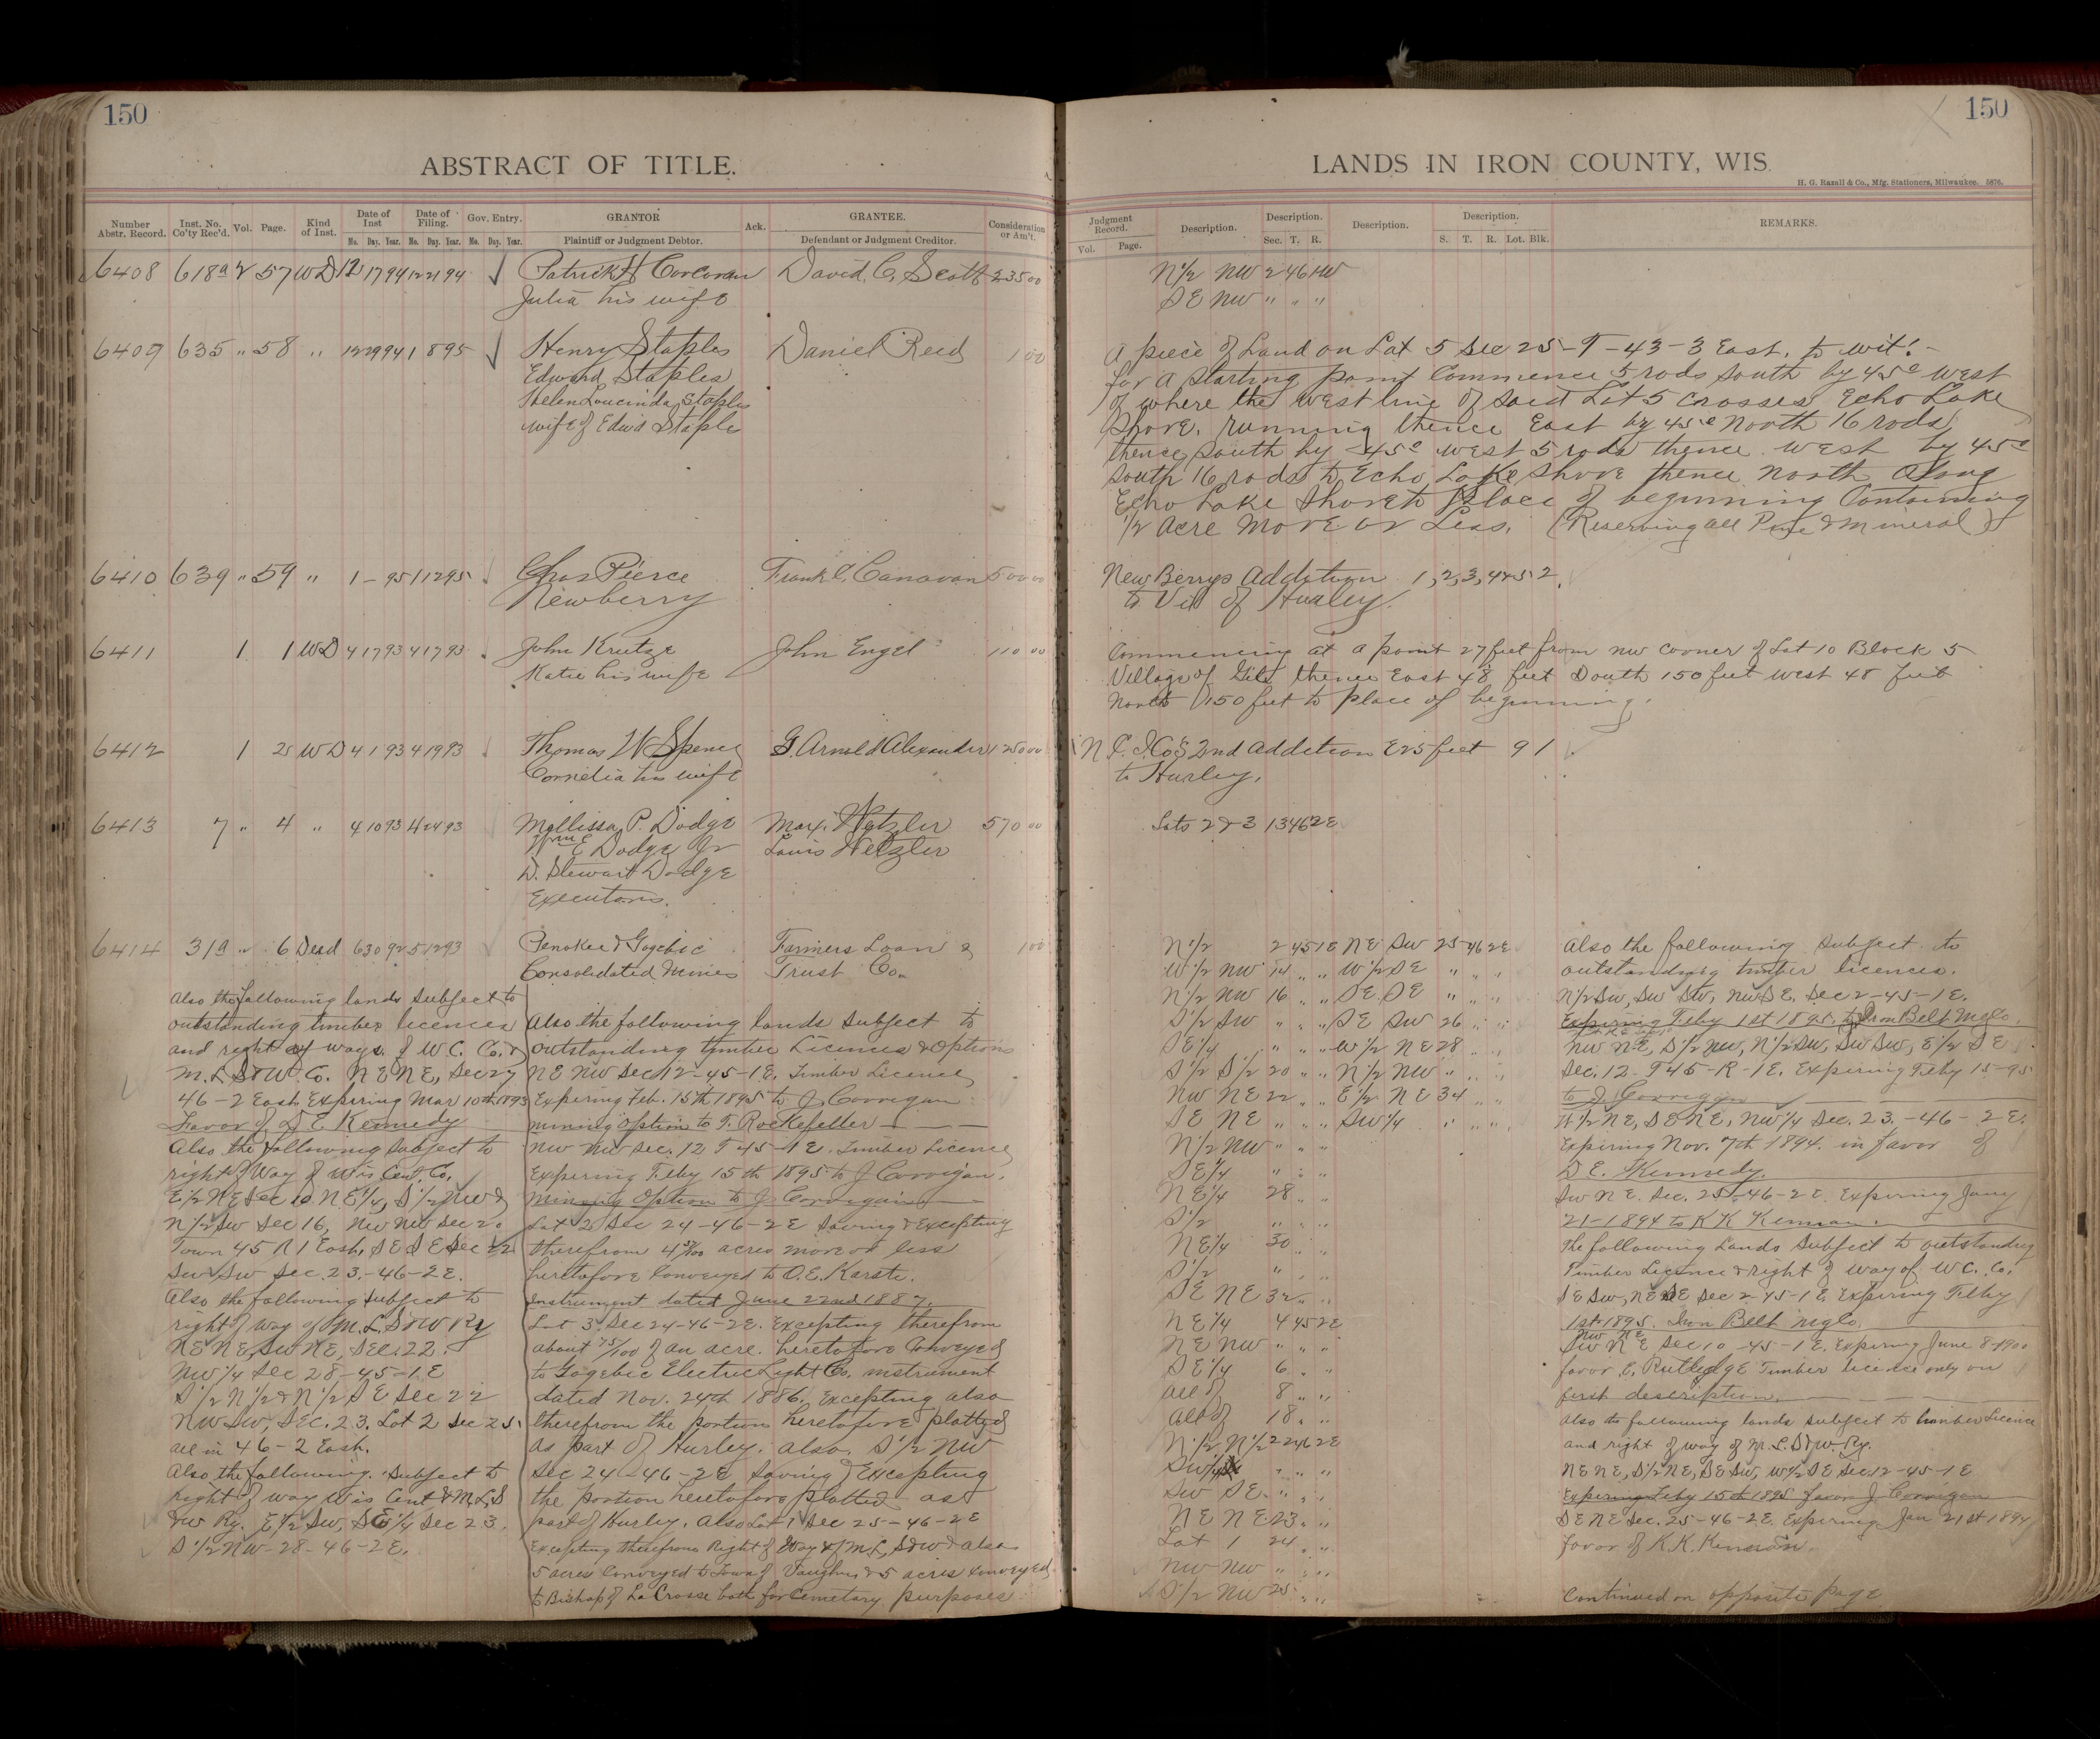 150
ABSTRACT OF TITLE.
Number Abstr. Record.
Inst. No. Co'ty Rec'd.
Vol.
Page.
Kind of Inst.
Date of Inst
Date of Filing.
Gov. Entry.
GRANTOR
Ack.
GRANTEE.
Consideration or Am't.
No. Day. Year. No. Day. Year. No. Day. Year.
Plaintiff or Judgment Debtor.
Defendant or Judgment Creditor.
6408 618a 2 57 WD 12 17 94 12 21 94 Patrick H Corcoran David C. Scott 235 00
Julia his wife
6409 635 " 58 " 12 29 94 1 8 95 Henry Staples Daniel Reid 1 00
Edward Staples
Helen Loucinda Staples
wife of Edwd Staple
6410 639 " 59 " 1 - 95 1 12 95 Chas Pierce Frank C. Canavan 500 00
Newberry
6411 1 1 WD 4 17 93 4 17 93 John Krutze John Engel 110 00
Katie his wife
6412 1 2 WD 4 1 93 4 19 93 Thomas W Spence G. Arnold Alexander 1250 00
Cornelia his wife
6413 7 " 4 " 4 10 93 4 24 93 Mellissa P. Dodge Max. Hetzler 570 00
Wm E Dodge Jr Louis Hetzler
D. Stewart Dodge
Executors.
6414 31a " 6 Deed 6 30 92 5 12 93 Penokee & Gogebic Farmers Loan & 1 00
Consolidated Mines Trust Co.
Also the following lands subject to
outstanding timber licences
and right of ways of W.C. Co. &
M.L.S&W. Co. NE NE, Sec 27
46-2 East Expiring Mar 10th 1893
Favor of D E Kennedy
Also the following subject to
right of Way of Wis Cent. Co.
E1/2 NE Sec 10 NE1/4, S1/2 NW &
N1/2 SW Sec 16, NW NW Sec 20
Town 45 R 1 East, SE SE Sec 22
SW SW Sec. 23.-46-2E.
Also the following subject to
right of way of M.L.S&W Ry
NE NE, SW NE, Sec. 22.
NW1/4 Sec 28-45-1E
S1/2 N1/2 & N1/2 SE Sec 22
NW SW, Sec. 23. Lot 2 Sec 25.
all in 46-2 East.
Also the following. Subject to
right of way Wis Cent & M.L.S
&W Ry. E1/2 SW, SE1/4 Sec 23.
S1/2 NW-28-46-2E.
Also the following lands subject to
outstanding timber Licences & options
NE NW Sec 12-45-1E. Timber Licence
Expiring Feb. 15th 1895 to J. Corrigan
mining option to F. Rockefeller
NW NW Sec. 12 T 45-1E. Timber Licence
Expiring Feby 15th 1895 to J Corrigan.
Mining Option to J Corrigan
Lot 2 Sec 24-46-2E Saving & Excepting
therefrom acres more or less
heretofore Conveyed to O.E. Karste.
Instrument dated June 22nd 1887.
Lot 3 Sec 24-46-2E. Excepting therefrom
about 75/100 of an acre. heretofore Conveyed
to Gogebic Electric Light Co. instrument
dated Nov. 24th 1886. Excepting also
therefrom the portion heretofore platted
as part of Hurley. also. S1/2 NW
Sec 24-46-2E Saving & Excepting
the portion heretofore platted as
part of Hurley. Also Lot 1 Sec 25-46-2E
Excepting therefrom Right of Way of M.L.S&W & also
5 acres Conveyed to Town of Vaughn & 5 acres conveyed
to Bishop of La Crosse both for Cemetary purposes
150
LANDS IN IRON COUNTY, WIS.
H. G. Razall & Co., Mfg. Stationers, Milwaukee. 5876.
Judgment Record.
Vol. Page.
Description.
Description.
Sec. T. R.
Description.
Description.
S. T. R. Lot. Blk.
REMARKS.
N1/2 NW 2 46
SE NW " " "
A piece of Land on Lot 5 Sec 25-T-43-3 East. to wit:-
for a Starting point Commence 5 rods South by 45° West
of where the West line of said Lot 5 crosses Echo Lake
Shore, running thence East by 45° North 16 rods
thence South by 45° west 5 rods thence west by 45°
South 16 rods to Echo Lake Shore thence North along
Echo Lake Shore to place of beginning Containing
1/2 acre more or Less. (Reserving all Pine & mineral)
NewBerrys Addition 1,2,3,4&5 2
to Vill of Hurley.
Commencing at a point 27 feet from NW Corner of Lot 10 Block 5
Village of Gile thence East 48 feet South 150 feet West 48 feet
North 150 feet to place of beginning.
N.C.I.Co's 2nd Addition E 25 feet 9 1
to Hurley.
Lots 2 & 3 13 46 2E
N1/2 2 45 1E NE SW 25 46 2E
W1/2 NW 14 " " W1/2 SE " " "
N1/2 NW 16 " " SE SE " " "
S1/2 SW " " " SE SW 26 " "
SE1/4 " " " W1/2 NE 28 " "
S1/2 S1/2 20 " " N1/2 NW " " "
NW NE 22 " " E1/2 NE 34 " "
SE NE " " " SW1/4 " " "
N1/2 NW " " "
SE1/4 " " "
NE1/4 28 " "
S1/2 " " "
NE1/4 30 " "
S1/2 " " "
SE NE 32 " "
NE1/4 4 45 2E
NE NW " " "
SE1/4 6 " "
all of 8 " "
All of 18 " "
N1/2 N1/2 22 46 2E
SW1/4 " " "
SW SE " " "
NE NE 23 " "
Lot 1 24 " "
NW NW " " "
S1/2 NW 25 " "
Also the following subject to
outstanding timber licences.
N1/2 SW, SW SW, NW SE. Sec 2-45-1E.
Expiring Feby 1st 1895. to Iron Belt Mfg Co.
NW NE, S1/2 NW, N1/2 SW, SW SW, E1/2 SE
Sec. 12-T45-R-1E. Expiring Feby 15-95
to J Corrigan
W1/2 NE, SE NE, NW1/4 Sec. 23.-46-2E.
Expiring Nov. 7th 1894. in favor of
D E. Kennedy.
SW NE. Sec. 25-46-2E. Expiring Jany
21-1894 to K K Kennan.
The following Lands Subject to outstanding
Timber Licence & right of way of W.C. Co.
SE SW, NE SE Sec 2-45-1E. Expiring Feby
1st 1895. Iron Belt Mfg Co.
NW NE
SW NE Sec 10-45-1E. Expiring June 8-1900
favor C. Rutledge Timber licence only on
first description.
Also the following lands subject to timber Licence
and right of way of M.L.S&W. Ry.
NE NE, S1/2 NE, SE SW, W1/2 SE Sec 12-45-1E
Expiring Feby 15th 1895 favor J. Corrigan
SE NE Sec. 25-46-2E. Expiring Jan 21st 1894
favor of K.K. Kennan.
Continued on opposite page